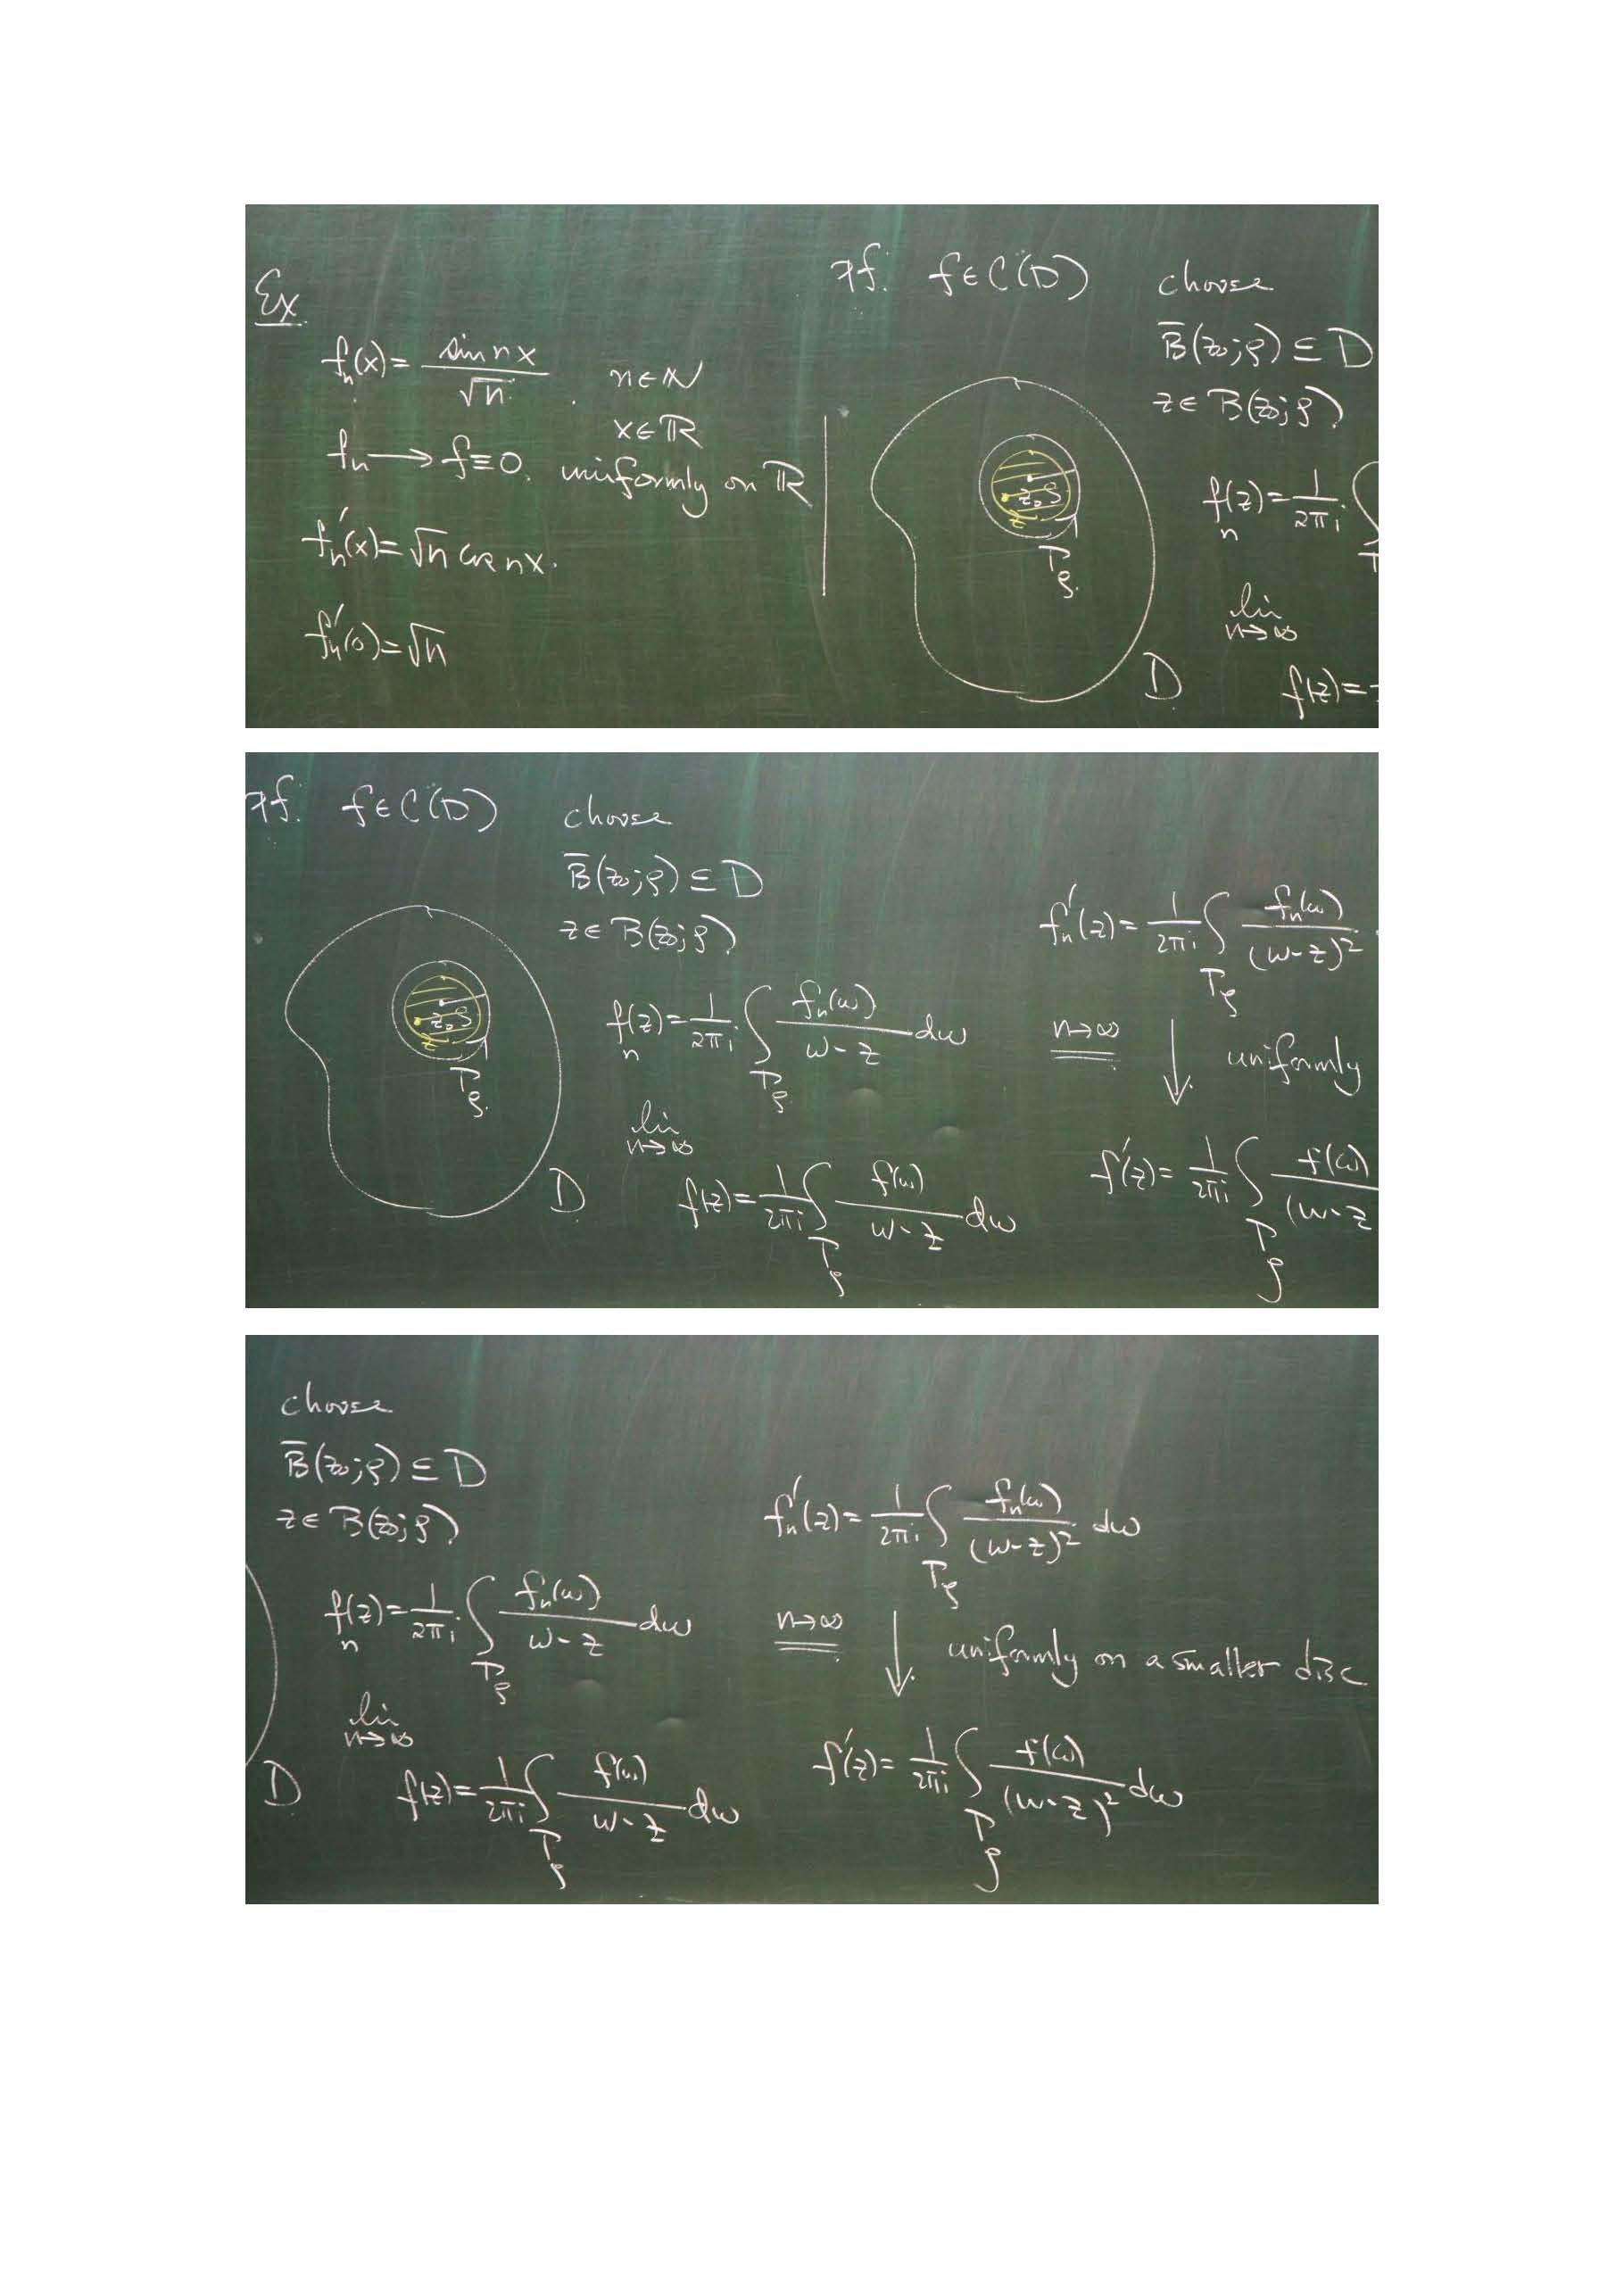 Ex
fₙ(x) = sin nx / √n . n∈ℕ
x∈ℝ
fₙ → f≡0. uniformly on ℝ
fₙ′(x) = √n cos nx.
fₙ′(0) = √n
pf: f∈C(D) choose
B̄(z₀;ρ) ⊆ D
z∈B(z₀;ρ)
z₀ ρ
z
Γρ.
D
fₙ(z) = 1/2πi ∫
lim n→∞
f(z) =
pf: f∈C(D) choose
B̄(z₀;ρ) ⊆ D
z∈B(z₀;ρ)
z₀ ρ
z
Γρ.
D
fₙ(z) = 1/2πi ∫Γρ fₙ(w) / (w-z) dw
lim n→∞
f(z) = 1/2πi ∫Γρ f(w) / (w-z) dw
fₙ′(z) = 1/2πi ∫Γρ fₙ(w) / (w-z)²
n→∞ ↓ uniformly
f′(z) = 1/2πi ∫Γρ f(w) / (w-z
choose
B̄(z₀;ρ) ⊆ D
z∈B(z₀;ρ)
fₙ(z) = 1/2πi ∫Γρ fₙ(w) / (w-z) dw
lim n→∞
D f(z) = 1/2πi ∫Γρ f(w) / (w-z) dw
fₙ′(z) = 1/2πi ∫Γρ fₙ(w) / (w-z)² dw
n→∞ ↓ uniformly on a smaller disc
f′(z) = 1/2πi ∫Γρ f(w) / (w-z)² dw